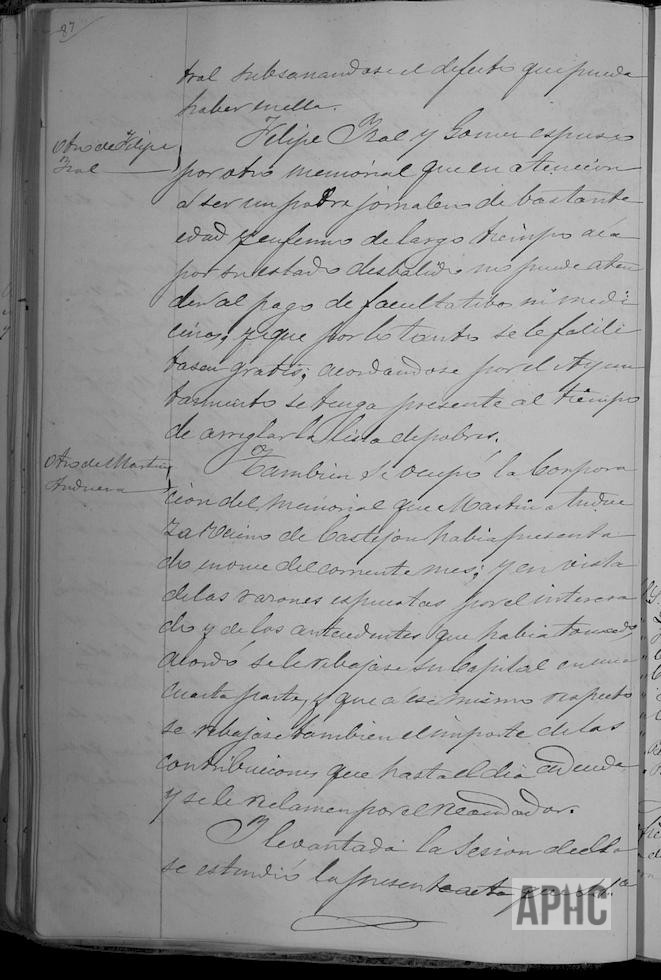 87
tral subsanandose el defecto que pueda
haber en ella.
Otro de Felipe
Tral
Felipe Tral y Gomez espuso
por otro memorial que en atencion
á ser un pobre jornalero de bastante
edad y enfermo de largo tiempo acá
por su estado desbalido no puede aten
der al pago de facultatibos ni medi
cinas, y que por lo tanto se le facili
tasen gratis; acordandose por el Ayun
tamiento se tenga presente al tiempo
de arreglar la lista de pobres.
Otro de Martin
Andueza
Tambien se ocupó la Corpora
cion del memorial que Martin Andue
za vecino de Castejon habia presenta
do en nueve del corriente mes; y en vista
de las razones espuestas por el interesa
do y de los antecedentes que habia tomado
acordó se le rebajase su Capital en una
cuarta parte, y que á ese mismo respecto
se rebajase tambien el importe de las
contribuciones que hasta el dia adeuda
y se le reclamen por el recaudador.
Y levantada la Sesion de ella
se estendió la presente acta que
APHC